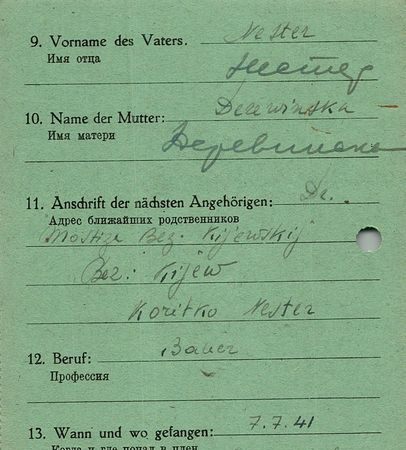 9. Vorname des Vaters. Nester
Имя отца Нестер
10. Name der Mutter: Derewinska
Имя матери
11. Anschrift der nächsten Angehörigen: D.
Адрес ближайших родственников
Mostiza Bez. Kijewskij
Bez: Kijew
Koritko Nester
12. Beruf: Bauer
Профессия
13. Wann und wo gefangen: 7.7.41
Когда и где попал в плен